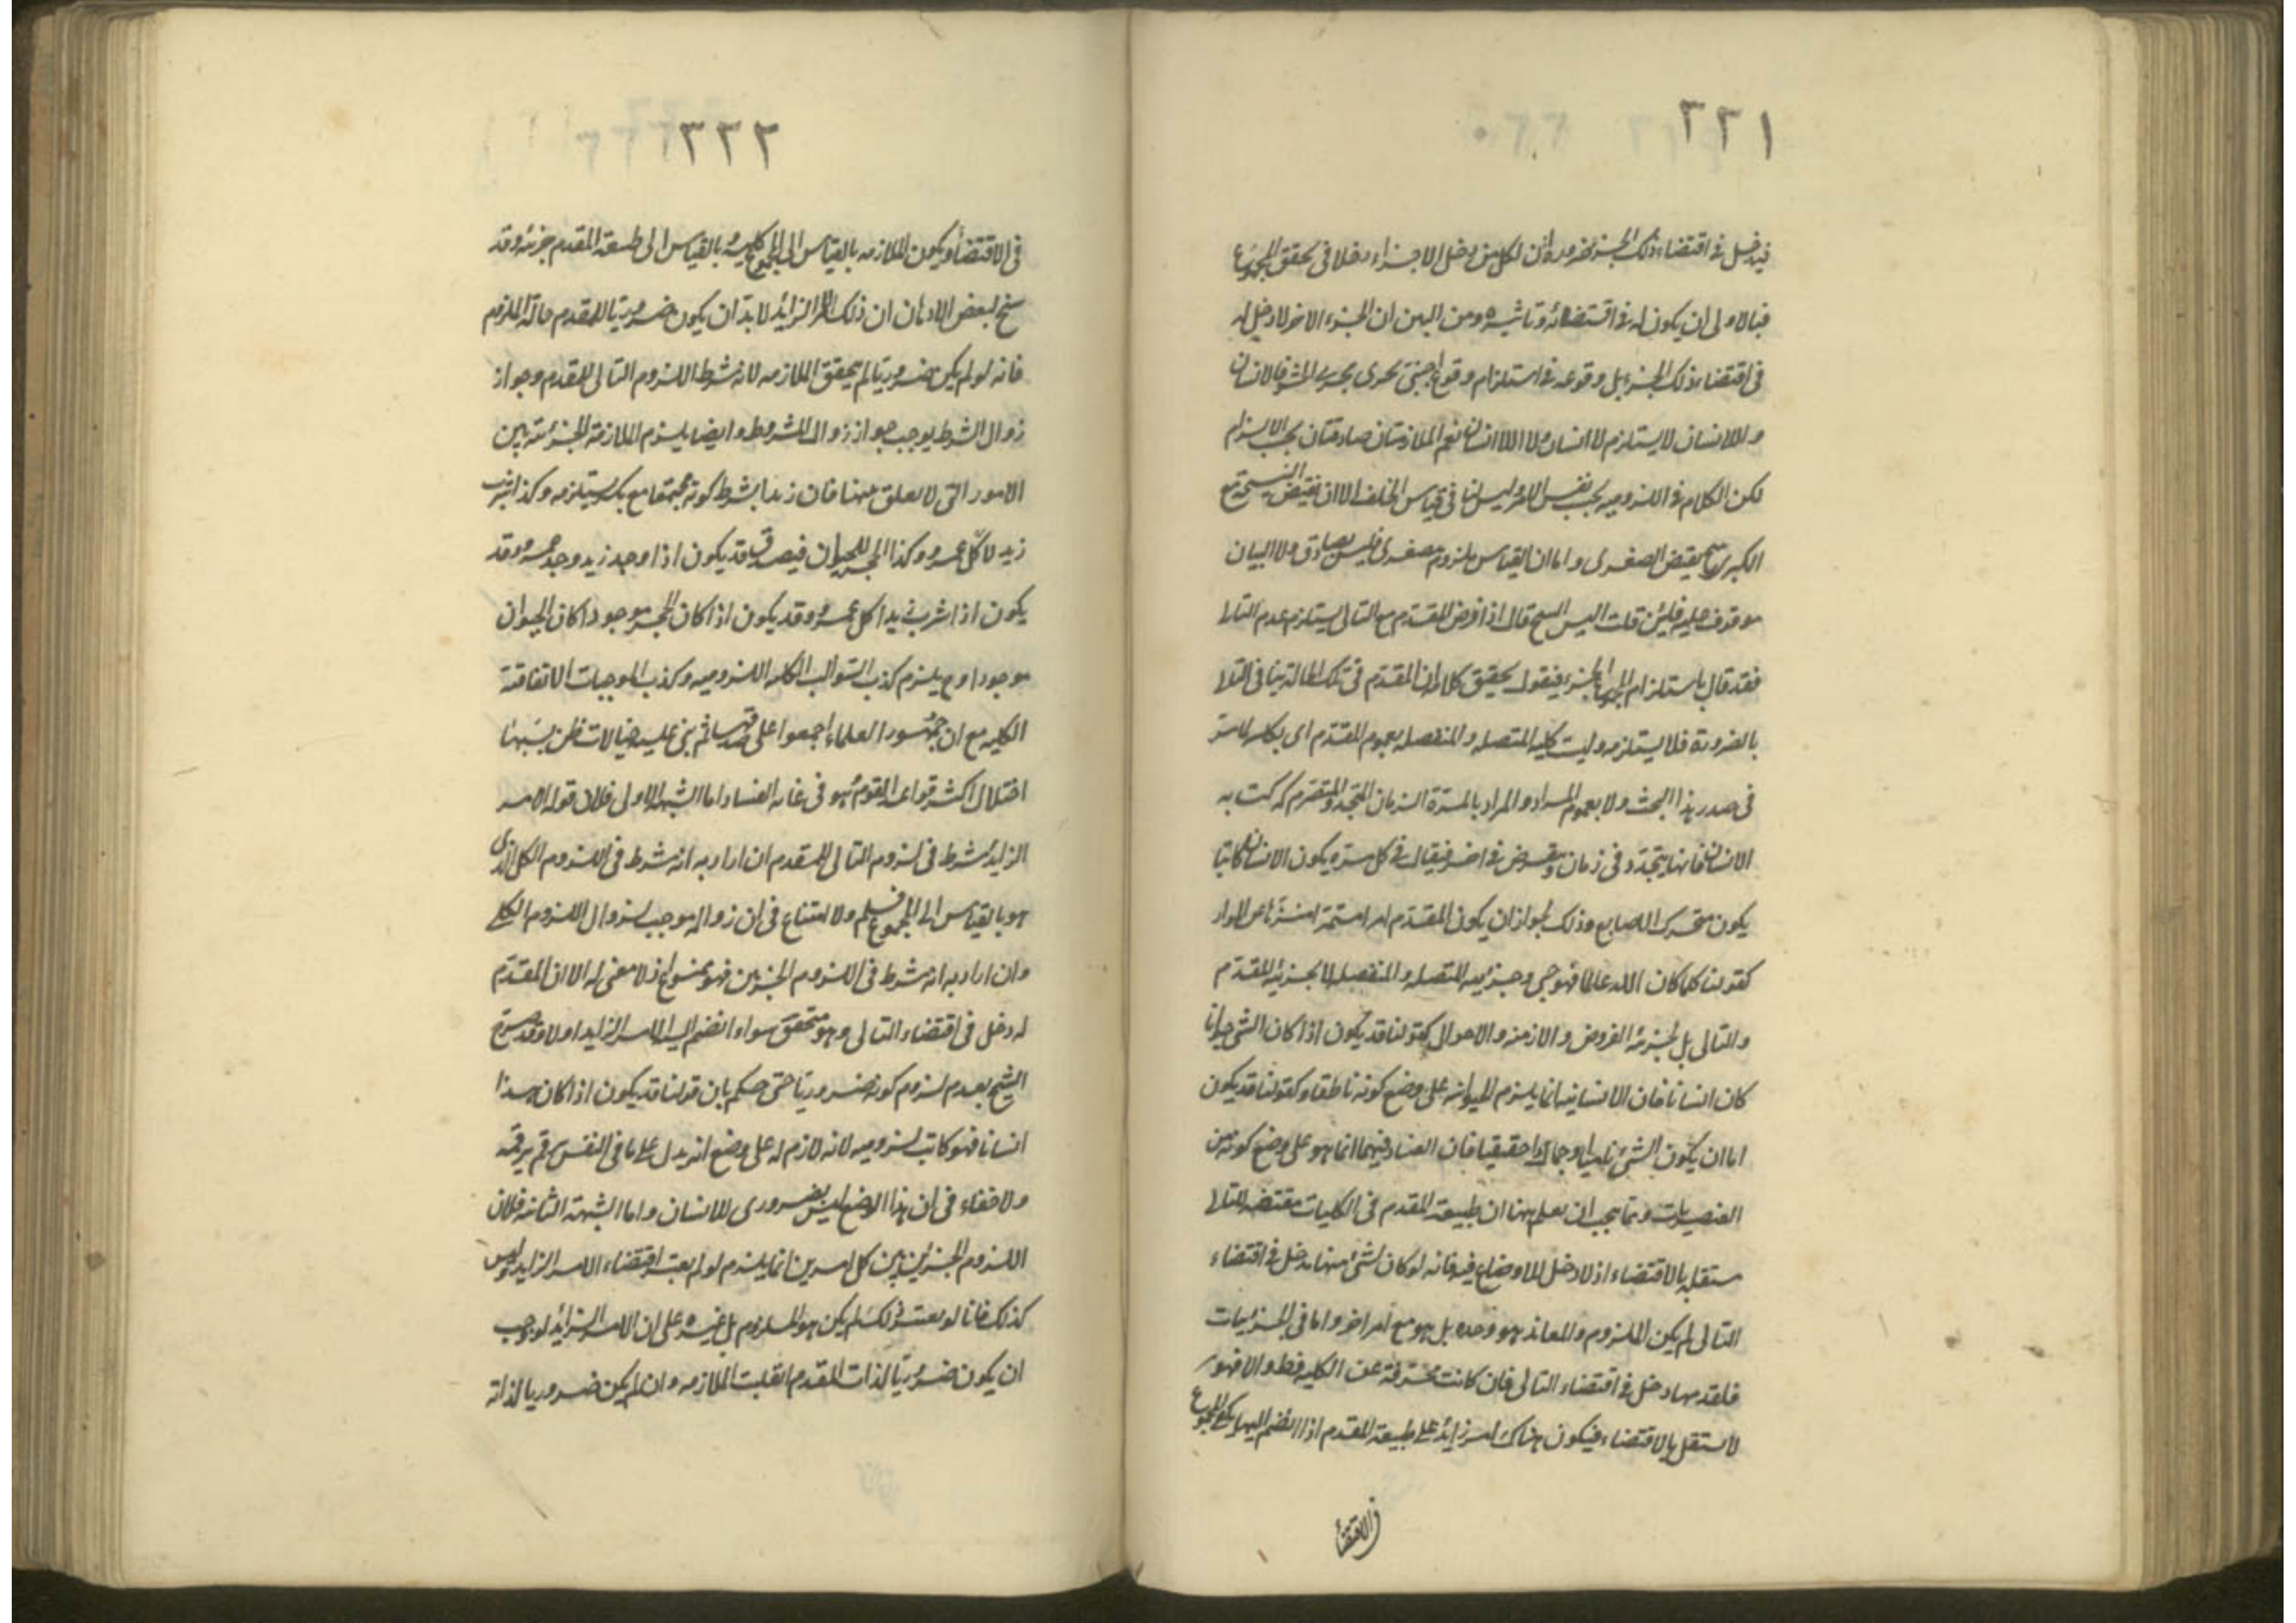 ٢٢١
فيدخل فى اقتضاء ذلك الجزء ضرورة ان لكل من دخل الاجزاء دخلا فى تحقق المجموع
فبالاولى ان يكون له فى اقتضائه وتاثيره ومن البين ان الجزء الاخر لا دخل له
فى اقتضاء ذلك الجزء بل وقوعه فى استلزام وقوع اجنبى يجرى مجرى الحشو فالانسان
واللاانسان لا يستلزم لا انسان ولا اللاانسان نعم الملازمتان صادقتان بحسب الالزام
لكن الكلام فى اللزوميه بحسب نفس الامر وليس لنا فى قياس الخلف الا ان نقيض النتيجة مع
الكبرى ينتج نقيض الصغرى واما ان القياس ملزوم صغرى فليس بصادق ولا البيان
موقوف عليه فلئن قلت اليس الشيخ قال اذا فرض المقدم مع التالى يستلزم عدم التالى
فقد قال باستلزام الجزء فنقول تحقيق كلامه ان المقدم فى تلك الحالة ينافى التالى
بالضرورة فلا يستلزمه وليست كلية المتصله والمنفصله بعموم المقدم اى بكليته كما مر
فى صدر هذا البحث ولا بعموم المراد والمراد بالمرة الزمان المتجدد والمتصرم ككتابه
الانسان فانها يتجدد فى زمان وتنقرض فى اخر فيقال فى كل مرة يكون الانسان كاتبا
يكون متحرك الاصابع وذلك لجواز ان يكون المقدم امرا مستمرا منزها عن المرار
كقولنا كلما كان الله عالما فهو حى وجزئيه المتصله والمنفصله لا بجزئية المقدم
والتالى بل بجزئية الفروض والازمنه والاحوال كقولنا قد يكون اذا كان الشى حيوانا
كان انسانا فان الانسانيه انما يلزم الحيوانيه على وضع كونه ناطقا وكقولنا قد يكون
اما ان يكون الشى ناميا او جمادا حقيقيا فان العناد فيهما انما هو على وضع كونه من
العنصريات ومما يجب ان يعلم ههنا ان طبيعة المقدم فى الكليات مقتضيه للتالى
مستقله بالاقتضاء اذ لا دخل للاوضاع فيه فانه لو كان لشئ منها دخل فى اقتضاء
التالى لم يكن الملزوم والمعاند هو وحده بل هو مع امر اخر واما فى الجزئيات
فلمقدمها دخل فى اقتضاء التالى فان كانت محرفة عن الكليه فظ والا فهو
لا يستقل بالاقتضاء فيكون هناك امر زائد على طبيعة المقدم اذا انضم اليها يكفى المجموع
فى الاقتضاء
٢٢٢
فى الاقتضاء ويكون الملازمه بالقياس الى المجموع كليه وبالقياس الى طبيعة المقدم جزئيه وقد
سنح لبعض الاذهان ان ذلك الامر الزائد لا بد ان يكون ضروريا للمقدم حالة اللزوم
فانه لو لم يكن ضروريا لم يتحقق الملازمه لانه شرط اللزوم التالى للمقدم وجواز
زوال الشرط يوجب جواز زوال المشروط وايضا يلزم الملازمة الجزئية بين
الامور التى لا تعلق بينها فان زيدا بشرط كونه مجتمعا مع بكر يستلزمه وكذا شرب
زيد لاكل عمرو وكذا الحجر للحيوان فيصدق قد يكون اذا وجد زيد وجد عمرو وقد
يكون اذا شرب زيد اكل عمرو وقد يكون اذا كان الحجر موجودا كان الحيوان
موجودا وح يلزم كذب السوالب الكليه اللزوميه وكذب الموجبات الاتفاقية
الكليه مع ان جمهور العلماء اجمعوا على صدقها ثم بنى عليه خيالات ظن بسببها
اختلال اكثر قواعد القوم وهو فى غاية الفساد اما الشبهة الاولى فلان قوله الامر
الزايد شرط فى لزوم التالى للمقدم ان اراد به انه شرط فى اللزوم الكلى الذى
هو بالقياس الى المجموع فمسلم ولا امتناع فى ان زواله موجب لزوال اللزوم الكلى
وان اراد به انه شرط فى اللزوم الجزئى فهو ممنوع اذ لا معنى له الا ان المقدم
له دخل فى اقتضاء التالى وهو متحقق سواء انضم اليه الامر الزايد او لا وقد صرح
الشيخ بعدم لزوم كونه ضروريا حتى حكم بان قولنا قد يكون اذا كان هذا
انسانا فهو كاتب لزوميه لانه لازم له على وضع انه يدل على ما فى النفس برقم يرقمه
ولا خفاء فى ان هذا الوضع ليس بضرورى للانسان واما الشبهة الثانية فلان
اللزوم الجزئى بين كل امرين انما يلزم لو لم يعتبر اقتضاء الامر الزايد وليس
كذلك فانا لو لم نعتبر ذلك لم يكن هو الملزوم بل غيره على ان الامر الزايد لو وجب
ان يكون ضروريا لذات المقدم انقلبت الملازمه وان لم يكن ضروريا لذاته